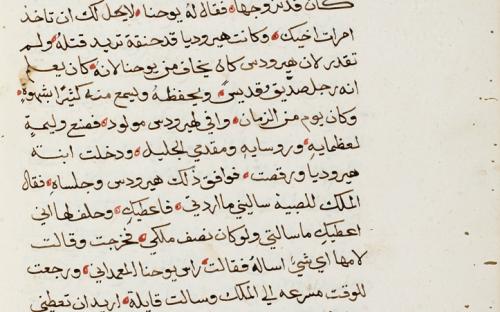 كان قد تزوجها فقال له يوحنا لا يحل لك ان تاخذ
امرات اخيك وكانت هيروديا قد حنقة تريد قتله ولم
تقدر لان هيرودس كان يخاف من يوحنا لانه كان يعلم
انه رجل صديق وقديس ويحفظه ويسمع منه كثيرًا بشهوة
وكان يوم من الزمان وافي لهيرودس مولود فصنع وليمة
لعظمايه وروسايه ومقدمي الجليل ودخلت ابنة
هيروديا ورقصت فوافق ذلك هيرودس وجلساه فقال
الملك للصبية ساليني ما اردتي فاعطيك وحلف لها اني
اعطيك ما سالتي ولو كان نصف ملكي فخرجت وقالت
لامها اي شيء اساله فقالت راس يوحنا المعمداني ورجعت
للوقت مسرعه الي الملك وسالت قايلة اريد ان تعطيني